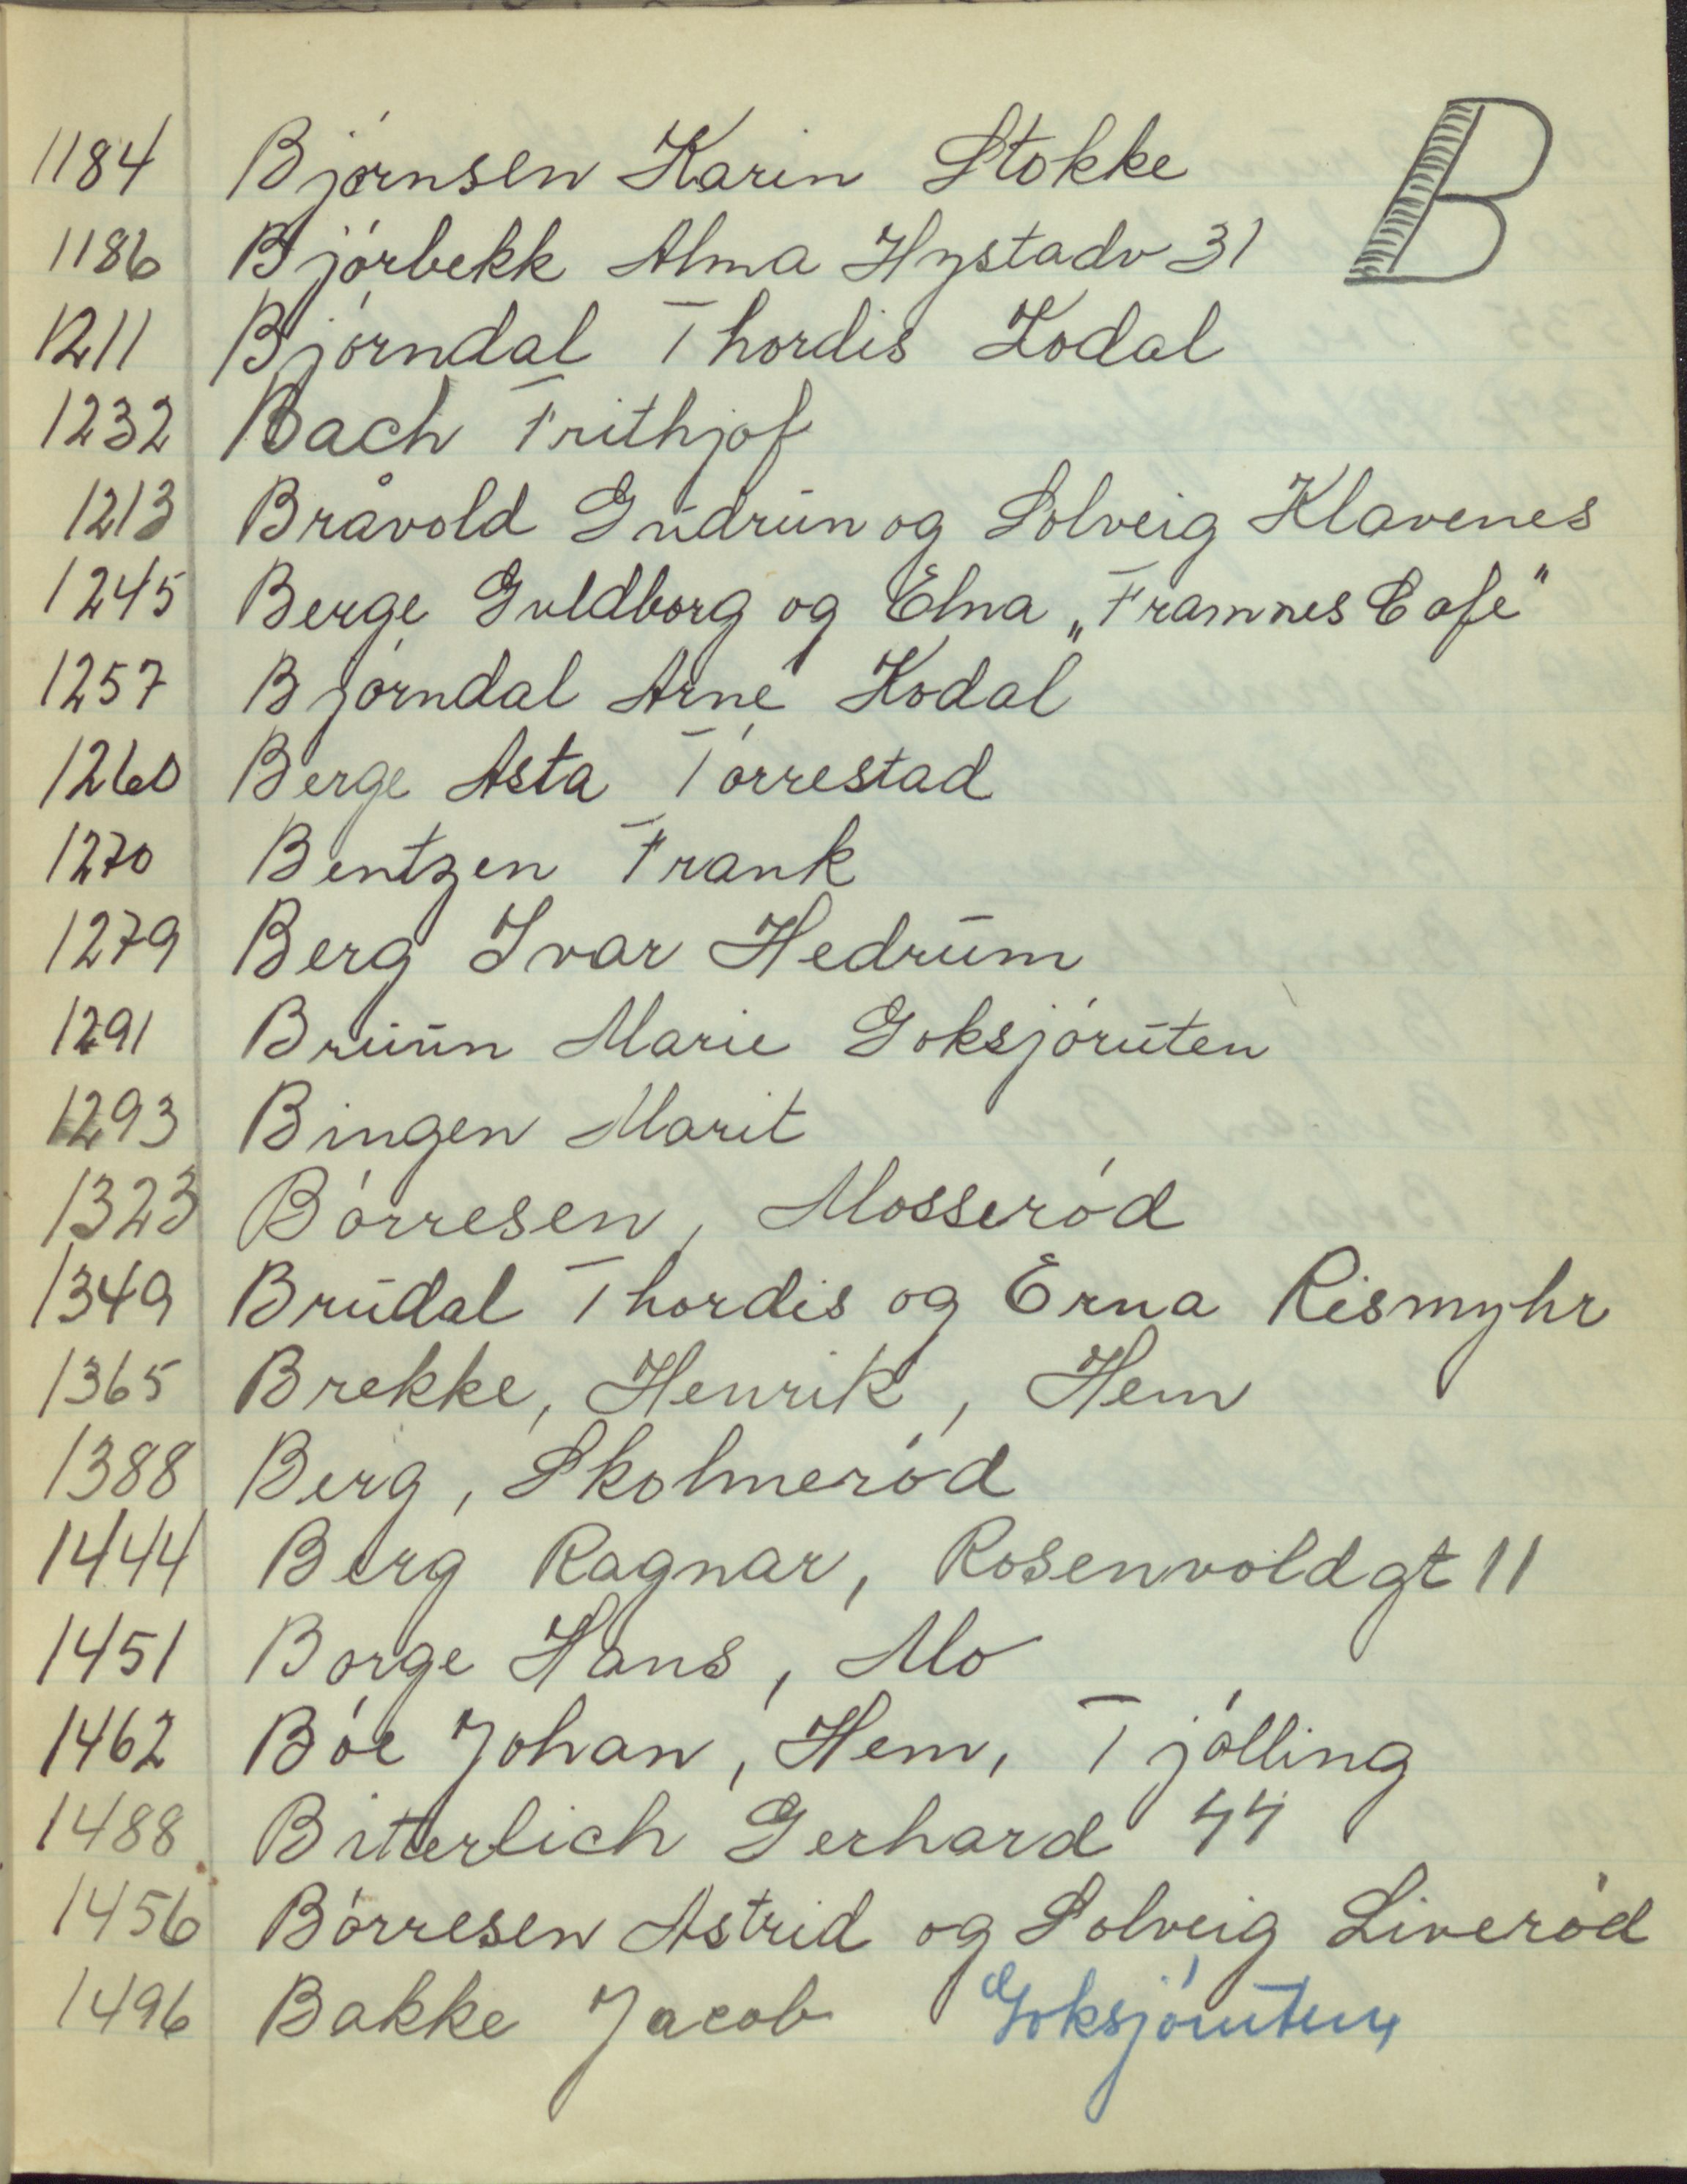 B
1184 Bjórnsen Karin Stokke
1186 Bjórbekk Alma Hystadv 31
1211 Bjórndal Thordis Kodal
1232 Bach Frithjof
1213 Bråvold Gudrun og Solveig Klavenes
1245 Berge Guldborg og Elna „Framnes Cafe"
1257 Bjórndal Arne Kodal
1260 Berge Asta Tórrestad
1270 Bentzen Frank
1279 Berg Ivar Hedrum
1291 Bruun Marie Goksjóruten
1293 Bingen Marit
1323 Bórresen, Mosseród
1349 Brudal Thordis og Erna Rismyhr
1365 Brekke, Henrik, Hem
1388 Berg, Skolmeród
1444 Berg Ragnar, Rosenvoldgt 11
1451 Borge Hans, Mo
1462 Bóe Johan, Hem, Tjólling
1488 Bitterlich Gerhard 44
1456 Bórresen Astrid og Solveig Liveród
1496 Bakke Jacob Goksjóruten